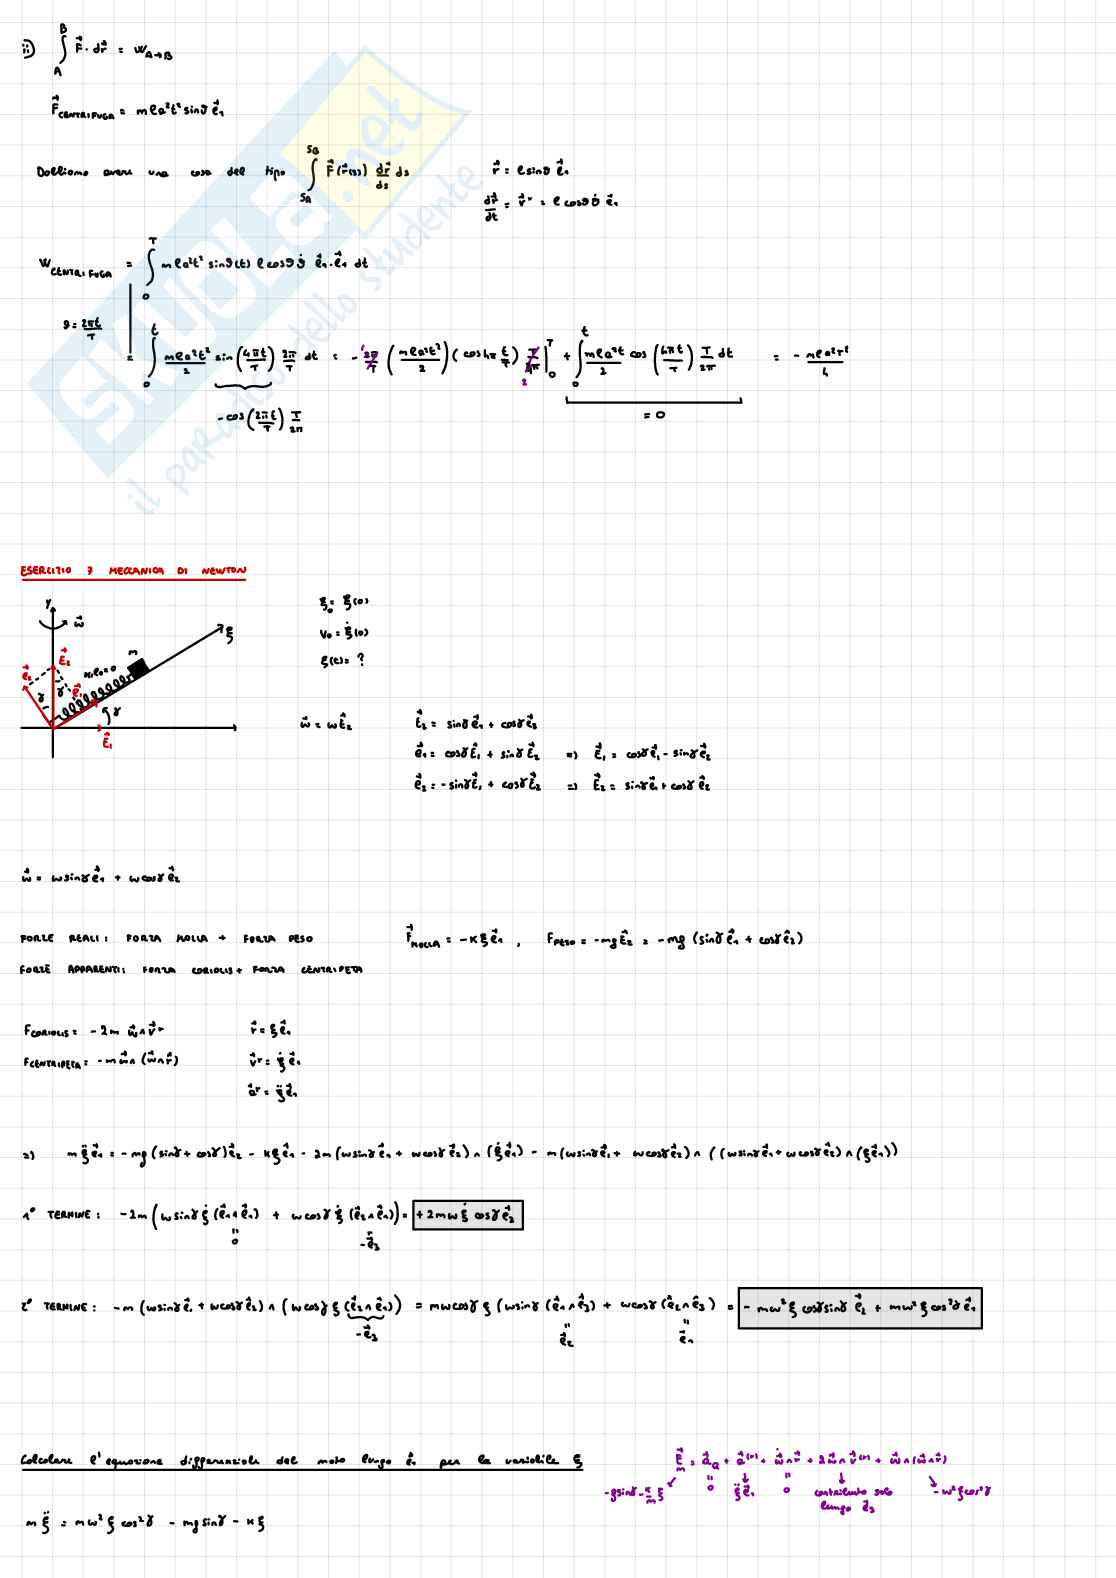 ii) ∫_A^B F⃗ · dr⃗ = W_{A→B}
F⃗_CENTRIFUGA = mℓa²t² sinϑ e⃗₁
Dobbiamo avere una cosa del tipo ∫_{S_A}^{S_B} F⃗(r⃗(s)) dr⃗/ds ds    r⃗ = ℓ sinϑ e⃗₁
dr⃗/dt = v⃗ʳ = ℓ cosϑ ϑ̇ e⃗₁
W_CENTRIFUGA = ∫_0^T mℓa²t² sinϑ(t) ℓ cosϑ ϑ̇ e⃗₁·e⃗₁ dt
ϑ = 2πt/T
= ∫_0^t mℓa²t²/2 sin(4πt/T) 2π/T dt = - 2π/T (mℓa²t²/2)(cos4π t/T) T/4π |_0^T + ∫_0^t mℓa²t/2 cos(4πt/T) T/2π dt = - mℓa²T²/4
- cos(2πt/T) T/2π
= 0
ESERCITIO 7 MECCANICA DI NEWTON
y
ω⃗
ξ
m
E⃗₂
e⃗₂
κ, ℓ₀=0
e⃗₁
γ
γ
γ
E⃗₁
ξ₀ = ξ(0)
v₀ = ξ̇(0)
ξ(t) = ?
ω⃗ = ωE⃗₂    E⃗₂ = sinγe⃗₁ + cosγe⃗₂
e⃗₁ = cosγE⃗₁ + sinγE⃗₂ => E⃗₁ = cosγe⃗₁ - sinγe⃗₂
e⃗₂ = -sinγE⃗₁ + cosγE⃗₂ => E⃗₂ = sinγe⃗₁ + cosγe⃗₂
ω⃗ = ωsinγe⃗₁ + ωcosγe⃗₂
FORZE REALI: FORZA MOLLA + FORZA PESO    F⃗_MOLLA = -κξe⃗₁ , F_PESO = -mgE⃗₂ = -mg (sinγe⃗₁ + cosγe⃗₂)
FORZE APPARENTI: FORZA CORIOLIS + FORZA CENTRIPETA
F_CORIOLIS = -2m ω⃗∧v⃗ʳ    r⃗ = ξe⃗₁
F_CENTRIPETA = -mω⃗∧(ω⃗∧r⃗)    v⃗ʳ = ξ̇e⃗₁
a⃗ʳ = ξ̈e⃗₁
=> mξ̈e⃗₁ = -mg(sinγ + cosγ)e⃗₂ - κξe⃗₁ - 2m(ωsinγe⃗₁ + ωcosγe⃗₂)∧(ξ̇e⃗₁) - m(ωsinγe⃗₁ + ωcosγe⃗₂)∧((ωsinγe⃗₁ + ωcosγe⃗₂)∧(ξe⃗₁))
1° TERMINE: -2m(ωsinγξ̇(e⃗₁∧e⃗₁) + ωcosγξ̇(e⃗₂∧e⃗₁)) = +2mωξ̇ cosγe⃗₂
0
-e⃗₃
2° TERMINE: -m(ωsinγe⃗₁ + ωcosγe⃗₂)∧(ωcosγξ(e⃗₂∧e⃗₁)) = mωcosγξ(ωsinγ(e⃗₁∧e⃗₃) + ωcosγ(e⃗₂∧e⃗₃) = -mω²ξ cosγsinγe⃗₂ + mω²ξcos²γe⃗₁
-e⃗₃
e⃗₂
e⃗₁
Calcolare l'equazione differenziale del moto lungo e⃗₁ per la variabile ξ
F⃗/m = a⃗_Ω + a⃗⁽ʳ⁾ + ω⃗̇∧r⃗ + 2ω⃗∧v⃗⁽ʳ⁾ + ω⃗∧(ω⃗∧r⃗)
-gsinγ - κ/m ξ    0    ξ̈e⃗₁    0    contributo solo lungo e⃗₃    -ω²ξcos²γ
mξ̈ = mω²ξcos²γ - mgsinγ - κξ
SKUOLA.net
il paradiso dello studente